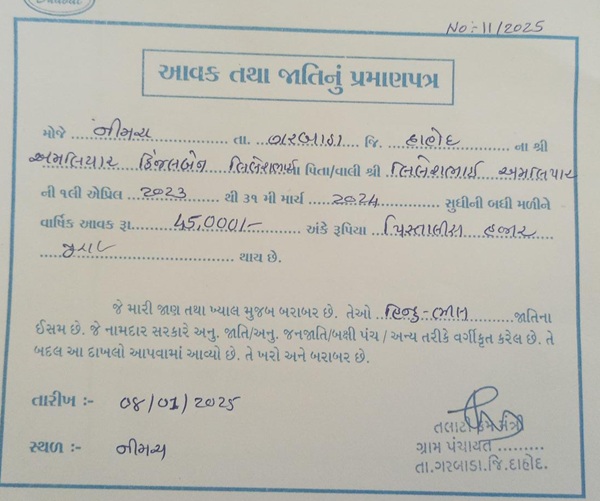 No:- 11/2025
આવક તથા જાતિનું પ્રમાણપત્ર
મોજે નીમચ તા. ગરબાડા જિ. દાહોદ ના શ્રી
અમલિયાર કિંજલબેન દિલેશભાઈ ના પિતા/વાલી શ્રી દિલેશભાઈ અમલિયાર
ની ૧લી એપ્રિલ 2023 થી ૩૧ મી માર્ચ 2024 સુધીની બધી મળીને
વાર્ષિક આવક રૂા. 45,000/- અંકે રૂપિયા પિસ્તાલીસ હજાર
પુરા થાય છે.
જે મારી જાણ તથા ખ્યાલ મુજબ બરાબર છે. તેઓ હિન્દુ-ભીલ જાતિના
ઈસમ છે. જે નામદાર સરકારે અનુ. જાતિ/અનુ. જનજાતિ/બક્ષી પંચ / અન્ય તરીકે વર્ગીકૃત કરેલ છે. તે
બદલ આ દાખલો આપવામાં આવ્યો છે. તે ખરો અને બરાબર છે.
તારીખ :- 08/01/2025
તલાટી કમ મંત્રી
સ્થળ :- નીમચ
ગ્રામ પંચાયત .........
તા.ગરબાડા.જિ.દાહોદ.